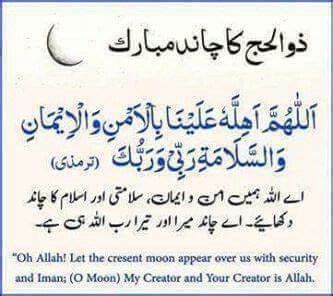 ذوالحج کا چاند مبارک
اَللّٰهُمَّ اَهِلَّهٗ عَلَيْنَا بِالْاَمْنِ وَالْاِيْمَانِ
وَالسَّلَامَةِ رَبِّيْ وَرَبُّكَ (ترمذی)
اے اللہ ہمیں امن و ایمان، سلامتی اور اسلام کا چاند
دکھائیے۔ اے چاند میرا اور تیرا رب اللہ ہی ہے۔
"Oh Allah! Let the cresent moon appear over us with security
and Iman; (O Moon) My Creator and Your Creator is Allah.